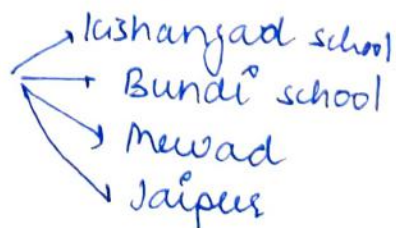 Kishangad school
Bundi school
Mewad
Jaipur